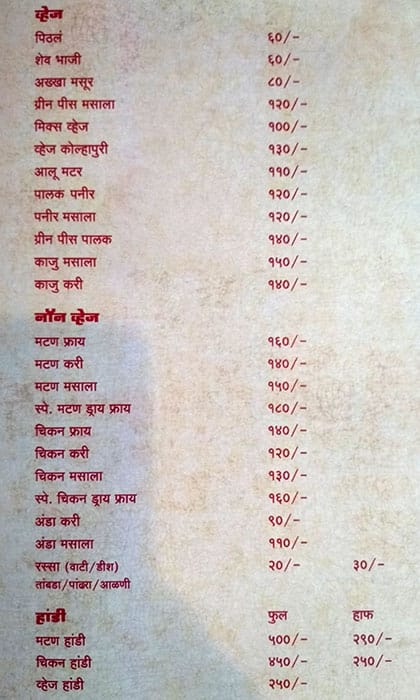 व्हेज
पिठलं ६०/-
शेव भाजी ६०/-
अख्खा मसूर ८०/-
ग्रीन पीस मसाला १२०/-
मिक्स व्हेज १००/-
व्हेज कोल्हापुरी १३०/-
आलू मटर ११०/-
पालक पनीर १२०/-
पनीर मसाला १२०/-
ग्रीन पीस पालक १४०/-
काजु मसाला १५०/-
काजु करी १४०/-
नॉन व्हेज
मटण फ्राय १६०/-
मटण करी १४०/-
मटण मसाला १५०/-
स्पे. मटण ड्राय फ्राय १८०/-
चिकन फ्राय १४०/-
चिकन करी १२०/-
चिकन मसाला १३०/-
स्पे. चिकन ड्राय फ्राय १६०/-
अंडा करी ९०/-
अंडा मसाला ११०/-
रस्सा (वाटी/डीश) २०/- ३०/-
तांबडा/पांढरा/आळणी
हांडी फुल हाफ
मटण हांडी ५००/- २९०/-
चिकन हांडी ४५०/- २५०/-
व्हेज हांडी २५०/-